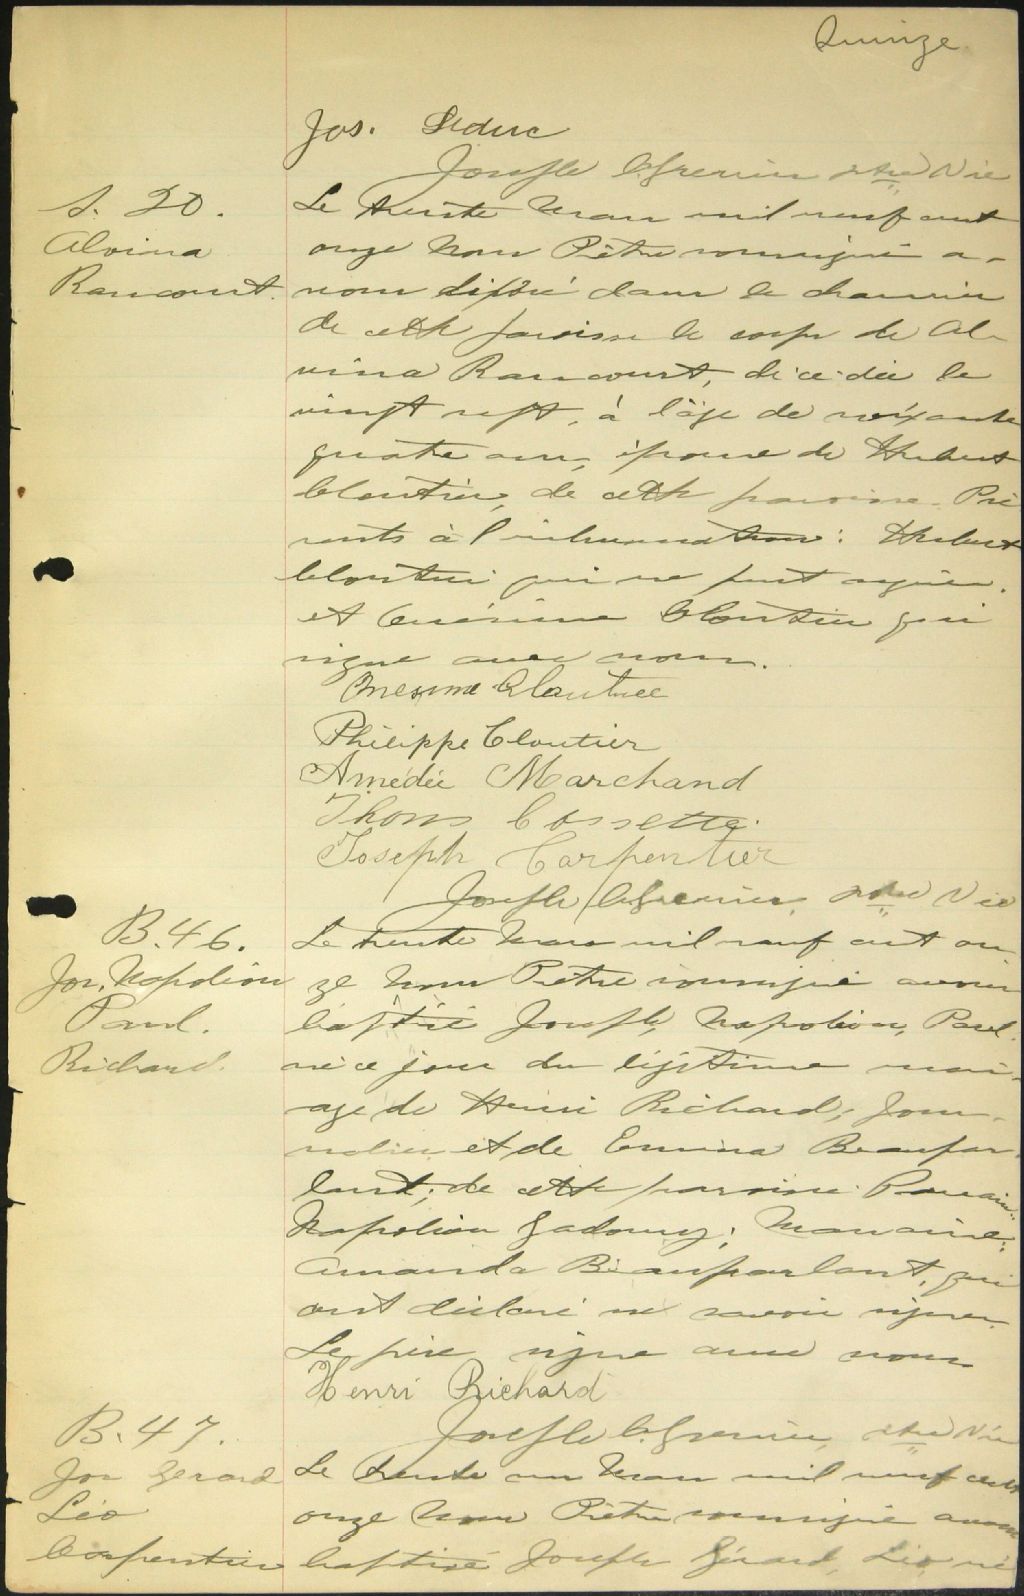 Quinze
Jos. Leduc
Joseph C. Grenier ptre Vic
S. 20.
Alvina
Rancourt.
Le trente Mars mil neuf cent
onze Nous Prêtre soussigné a-
vons déposé dans le charnier
de cette paroisse le corps de Al-
vina Rancourt, décédée le
vingt sept, à l'âge de soixante
quatre ans, épouse de Hubert
Cloutier, de cette paroisse. Pré
sents à l'inhumation: Hubert
Cloutier qui ne peut signer.
et Onésime Cloutier qui
signe avec nous.
Onesime Cloutier
Philippe Cloutier
Amédée Marchand
Thom Cossette.
Joseph Carpentier
Joseph C. Grenier, ptre Vic
B. 46.
Jos. Napoléon
Paul.
Richard.
Le trente Mars mil neuf cent on
ze Nous Prêtre soussigné avons
baptisé Joseph, Napoléon, Paul.
né ce jour du légitime mari-
age de Henri Richard, Jour-
nalier et de Emma Beaupar-
lant; de cette paroisse. Parrain:
Napoléon Gadoury; Marraine:
Amanda Beauparlant, qui
ont déclaré ne savoir signer.
Le père signe avec nous
Henri Richard
Joseph C. Grenier, ptre Vic
B. 47.
Jos Gerard
Léo
Carpentier
Le trente un Mars mil neuf cent
onze Nous Prêtre soussigné avons
baptisé Joseph Gérard, Léo, né